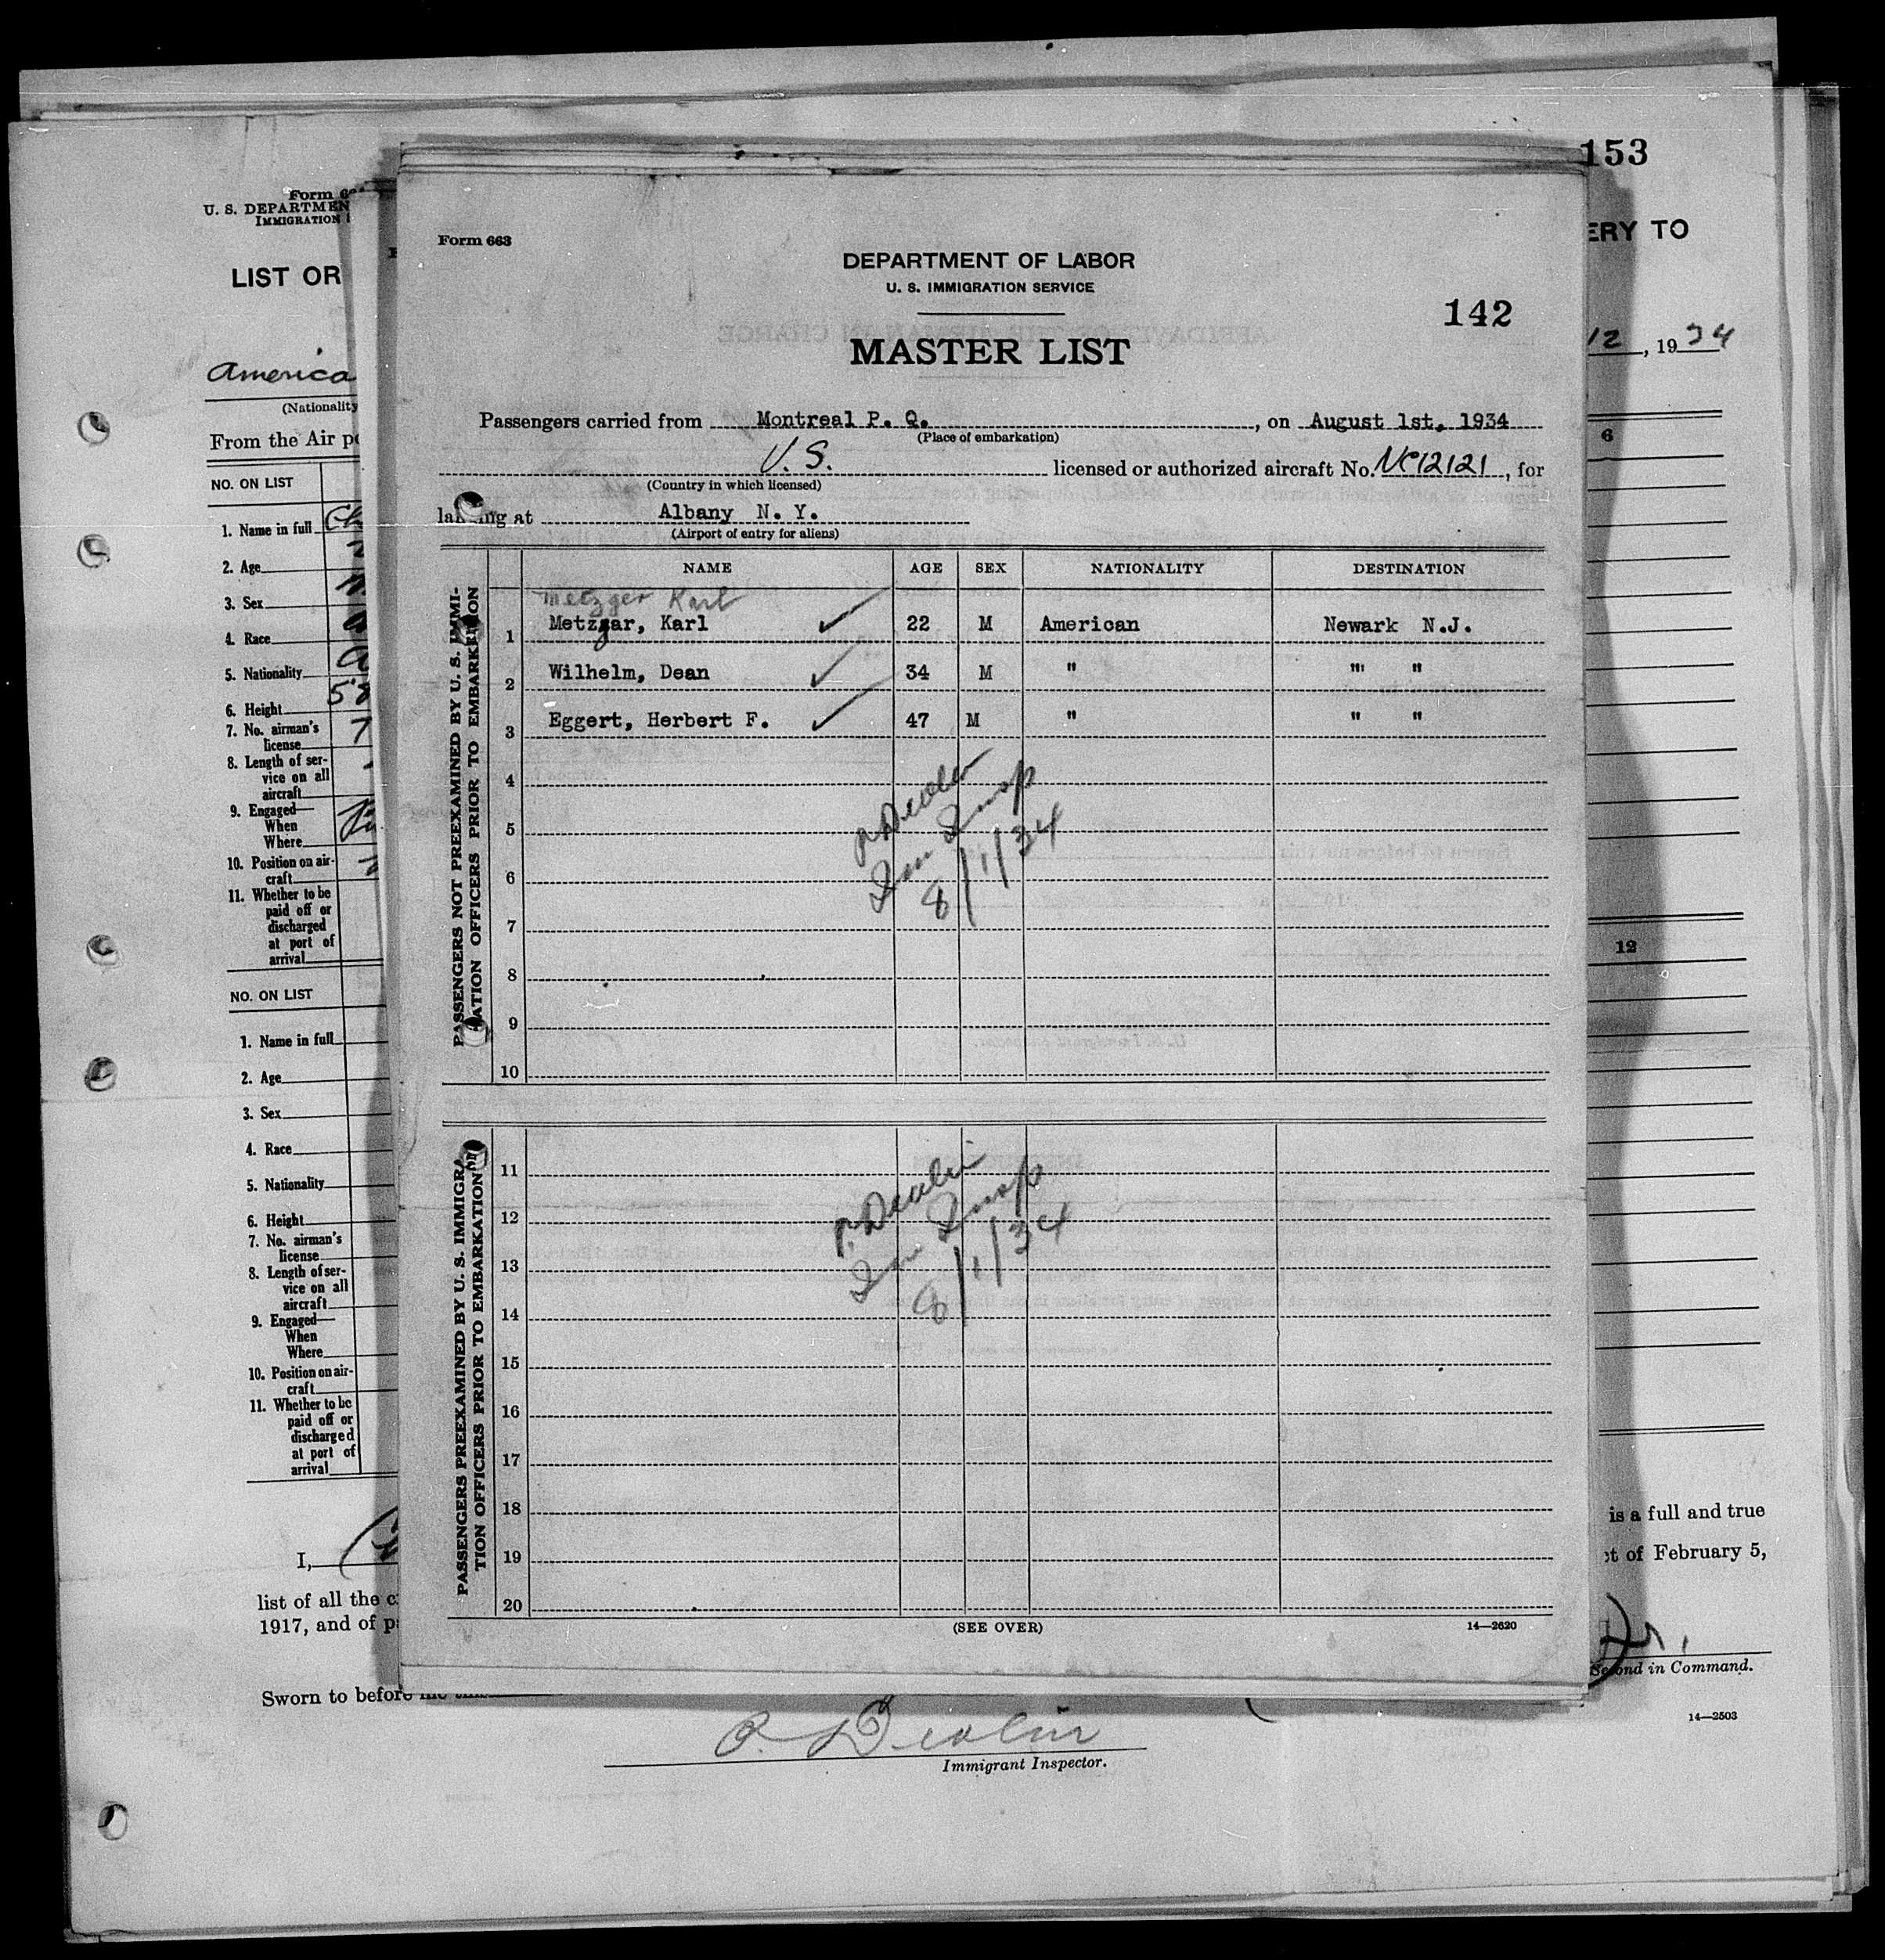 153
Form 66
U. S. DEPARTMEN
IMMIGRATION
LIST OR
ERY TO
12, 1934
America
(Nationality
From the Air po
NO. ON LIST
1. Name in full
2. Age
3. Sex
4. Race
5. Nationality
6. Height 5'8
7. No. airman's license 7
8. Length of service on all aircraft
9. Engaged—
When
Where
10. Position on aircraft
11. Whether to be paid off or discharged at port of arrival
6
12
NO. ON LIST
1. Name in full
2. Age
3. Sex
4. Race
5. Nationality
6. Height
7. No. airman's license
8. Length of service on all aircraft
9. Engaged—
When
Where
10. Position on aircraft
11. Whether to be paid off or discharged at port of arrival
Form 663
DEPARTMENT OF LABOR
U. S. IMMIGRATION SERVICE
142
MASTER LIST
Passengers carried from Montreal P. Q., on August 1st, 1934
(Place of embarkation)
U.S. licensed or authorized aircraft No. NC12121, for
(Country in which licensed)
landing at Albany N. Y.
(Airport of entry for aliens)
NAME AGE SEX NATIONALITY DESTINATION
PASSENGERS NOT PREEXAMINED BY U. S. IMMIGRATION OFFICERS PRIOR TO EMBARKATION
Metzger Karl
1 Metzgar, Karl ✓ 22 M American Newark N.J.
2 Wilhelm, Dean ✓ 34 M " " "
3 Eggert, Herbert F. ✓ 47 M " " "
4
5
6
7
8
9
10
P. Devlin
Imm Insp
8/1/34
PASSENGERS PREEXAMINED BY U. S. IMMIGRATION OFFICERS PRIOR TO EMBARKATION
11
12
13
14
15
16
17
18
19
20
P. Devlin
Imm Insp
8/1/34
(SEE OVER)
14—2620
I,
is a full and true
list of all the c
ct of February 5,
1917, and of p
Jr.
Second in Command.
Sworn to before me this
14—2503
P. Devlin
Immigrant Inspector.